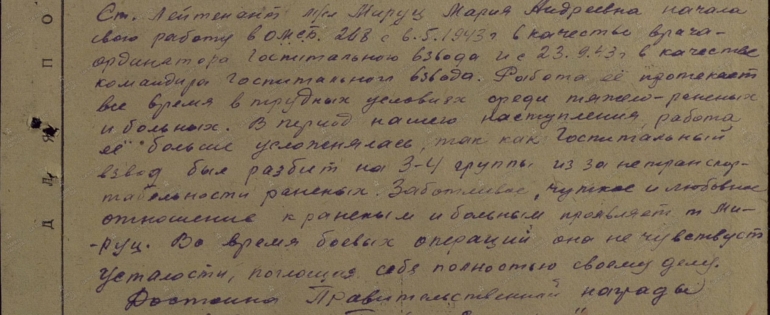 Ст. Лейтенант м/с Мируц Мария Андреевна начала
свою работу в ОМСБ. 268 с 6.5.1943 г в качестве врача-
ординатора Госпитального взвода и с 23.9.43 г в качестве
командира Госпитального взвода. Работа её протекает
все время в трудных условиях среди тяжело-раненых
и больных. В период нашего наступления работа
её больше усложнялась, так как Госпитальный
взвод был разбит на 3-4 группы из за нетранспор-
табельности раненых. Заботливое, чуткое и любовное
отношение к раненым и больным проявляет т. Ми-
-руц. Во время боевых операций она не чувствует
усталости, поглощая себя полностью своему делу.
Достойна Правительственной награды
Д Л Я П О